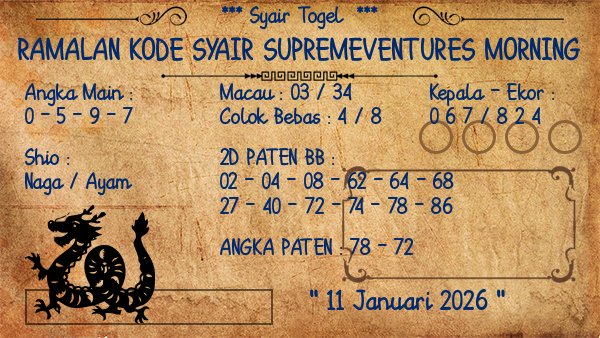 *** Syair Togel ***
RAMALAN KODE SYAIR SUPREMEVENTURES MORNING
Angka Main :
0 - 5 - 9 - 7
Macau : 03 / 34
Colok Bebas : 4 / 8
Kepala - Ekor :
0 6 7 / 8 2 4
Shio :
Naga / Ayam
2D PATEN BB :
02 - 04 - 08 - 62 - 64 - 68
27 - 40 - 72 - 74 - 78 - 86
ANGKA PATEN : 78 - 72
" 11 Januari 2026 "